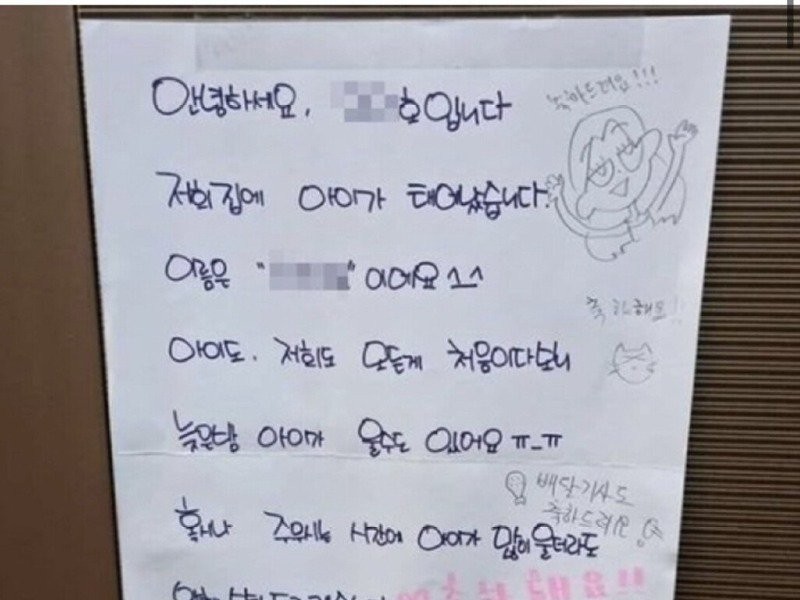 안녕하세요, 호입니다
축하드려요!!!
저희 집에 아이가 태어났습니다
이름은 " " 이에요 ^_^
축하해요!!
아이도, 저희도 모든게 처음이다보니
늦은밤 아이가 울수도 있어요 ㅠ_ㅠ
배달기사도
축하드려요
혹시나 주무시는 시간에 아이가 많이 울더라도